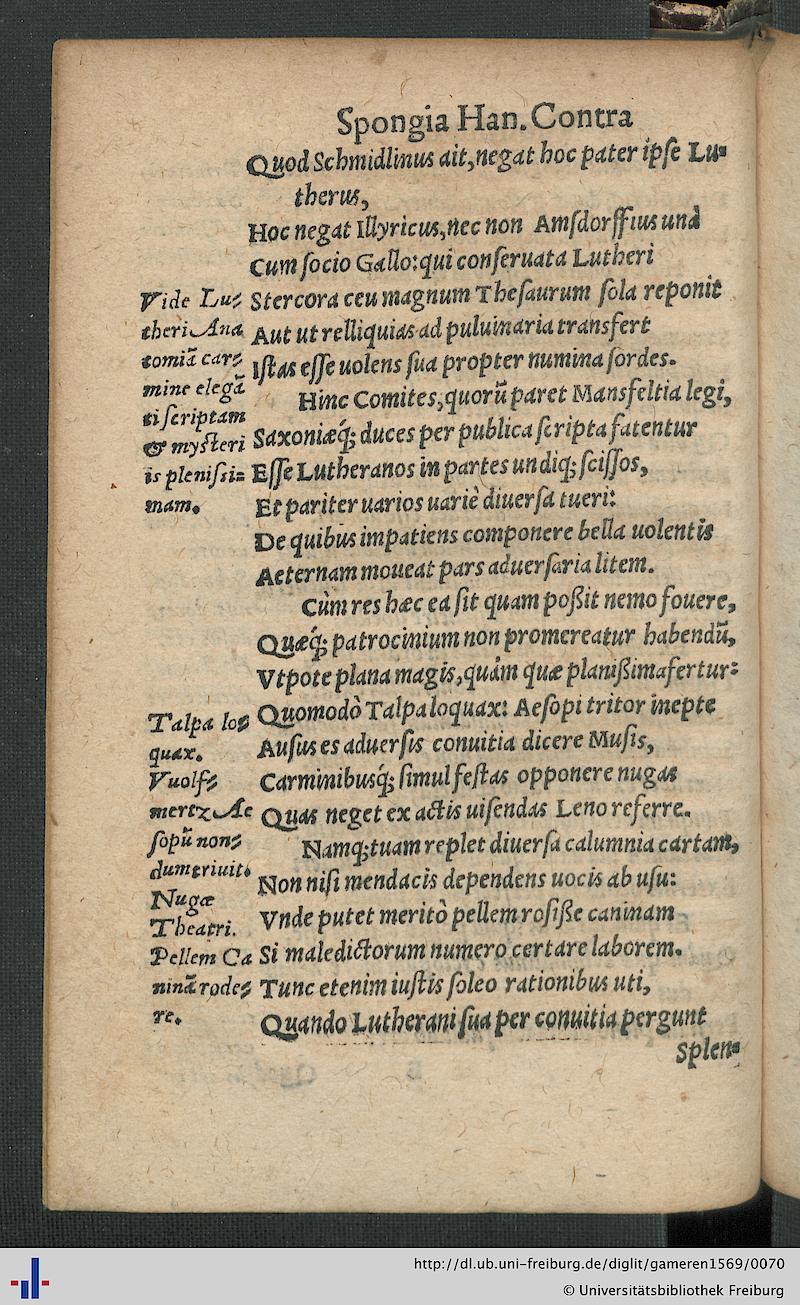 Spongia Han. Contra
Quod Schmidlinus ait, negat hoc pater ipse Lu-
therus,
Hoc negat Illyricus, nec non Amsdorffius unà
Cum socio Gallo: qui conseruata Lutheri
Stercora ceu magnum Thesaurum sola reponit
Aut ut relliquias ad puluinaria transfert
Istas esse uolens sua propter numina sordes.
Hinc Comites, quorũ paret Mansfeltia legi,
Saxoniæq́; duces per publica scripta fatentur
Esse Lutheranos in partes undiq; scissos,
Et pariter uarios uariè diuersa tueri:
De quibus impatiens componere bella uolentis
Aeternam moueat pars aduersaria litem.
Cùm res hæc ea sit quam poßit nemo fouere,
Quæq́; patrocinium non promereatur habendũ,
Vtpote plana magis, quàm quæ planißima fertur:
Quomodò Talpa loquax: Aesopi tritor inepte
Ausus es aduersis conuitia dicere Musis,
Carminibusq́; simul festas opponere nugas
Quas neget ex actis uisendas Leno referre.
Namq; tuam replet diuersa calumnia cartam,
Non nisi mendacis dependens uocis ab usu:
Vnde putet meritò pellem rosiße caninam
Si maledictorum numero certare laborem.
Tunc etenim iustis soleo rationibus uti,
Quando Lutherani sua per conuitia pergunt
Splen-
Vide Lu-
theri Ana
tomiã car-
mine elegã
ti scriptam
& mysteri
is plenissi-
mam.
Talpa lo-
quax.
Vuolf-
mertz Ae
sopũ non-
dum triuit.
Nugæ
Theatri.
Pellem Ca
ninã rode-
re.
http://dl.ub.uni-freiburg.de/diglit/gameren1569/0070
© Universitätsbibliothek Freiburg